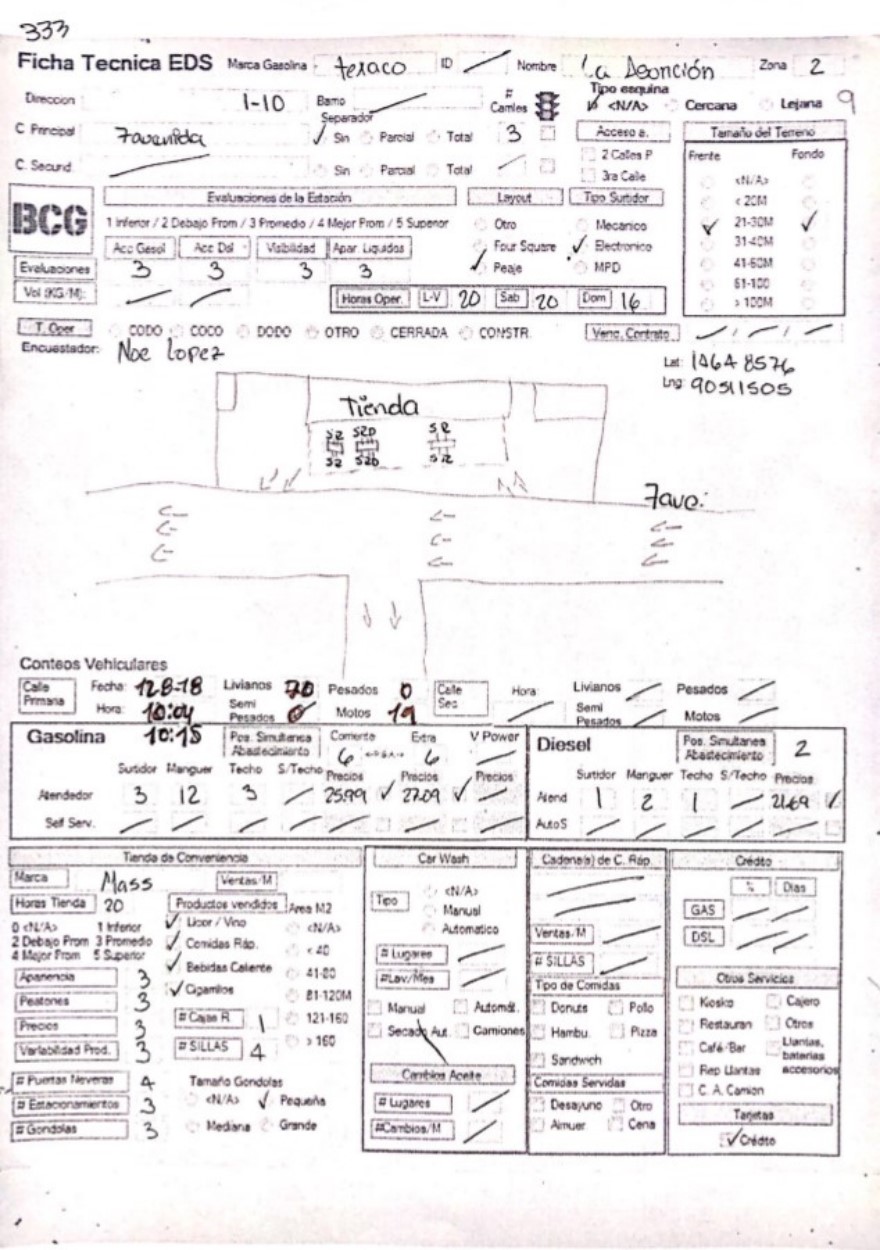 333
Ficha Tecnica EDS Marca Gasolina texaco ID Nombre La Asonción Zona 2
Direccion 1-10 Barrio # Carriles Tipo esquina <N/A> Cercana Lejana 9
C. Principal 7avenida Separador Sin Parcial Total 3 Acceso a. Tamaño del Terreno
2 Calles P Frente Fondo
C. Secund. Sin Parcial Total 3ra Calle <N/A>
BCG Evaluaciones de la Estación Layout Tipo Surtidor < 20M
1 Inferior / 2 Debajo Prom / 3 Promedio / 4 Mejor Prom / 5 Superior Otro Mecanico 21-30M
Acc Gasol Acc Dsl Visibilidad Apar. Liquidos Four Square Electronico 31-40M
Evaluaciones 3 3 3 3 Peaje MPD 41-60M
61-100
Vol (KG/M): Horas Oper. L-V 20 Sab 20 Dom 16 > 100M
T. Oper CODO COCO DODO OTRO CERRADA CONSTR. Venc. Contrato
Encuestador: Noe Lopez Lat: 14648576
Lng: 90511505
Tienda
S2 S2D S2
S2 S2D S2
7ave.
Conteos Vehiculares
Calle Primaria Fecha: 12-8-18 Livianos 70 Pesados 0 Calle Sec Hora: Livianos Pesados
Hora: 10:04 Semi Pesados 0 Motos 19 Semi Pesados Motos
Gasolina 10:15 Pos. Simultanea Abastecimiento Corriente 6 Extra 6 V Power Diesel Pos. Simultanea Abastecimiento 2
Surtidor Manguer Techo S/Techo Precios Precios Precios Surtidor Manguer Techo S/Techo Precios
Atendedor 3 12 3 25.99 27.09 Atend 1 2 1 21.69
Self Serv. AutoS
Tienda de Conveniencia Car Wash Cadena(s) de C. Ráp. Crédito
Marca Mass Ventas/M % Dias
Horas Tienda 20 Productos vendidos Area M2 Tipo <N/A> GAS
0 <N/A> 1 Inferior Licor / Vino <N/A> Manual
2 Debajo Prom 3 Promedio Comidas Ráp. < 40 Automatico Ventas/M DSL
4 Mejor Prom 5 Superior Bebidas Caliente 41-80 # Lugares # SILLAS
Apariencia 3 Cigarrillos 81-120M #Lav/Mes Tipo de Comidas Otros Servicios
Peatones 3 # Cajas R. 1 121-160 Manual Automát. Donuts Pollo Kosko Cajero
Precios 3 > 160 Secado Aut. Camiones Hambu. Pizza Restauran Otros
Variabilidad Prod. 3 # SILLAS 4 Sandwich Café/Bar Llantas, baterias accesorios
# Puertas Neveras 4 Tamaño Gondolas Cambios Aceite Comidas Servidas Rep Llantas
# Estacionamientos 3 <N/A> Pequeña # Lugares Desayuno Otro C. A. Camion
# Gondolas 3 Mediana Grande #Cambios/M Almuer Cena Tarjetas
Crédito